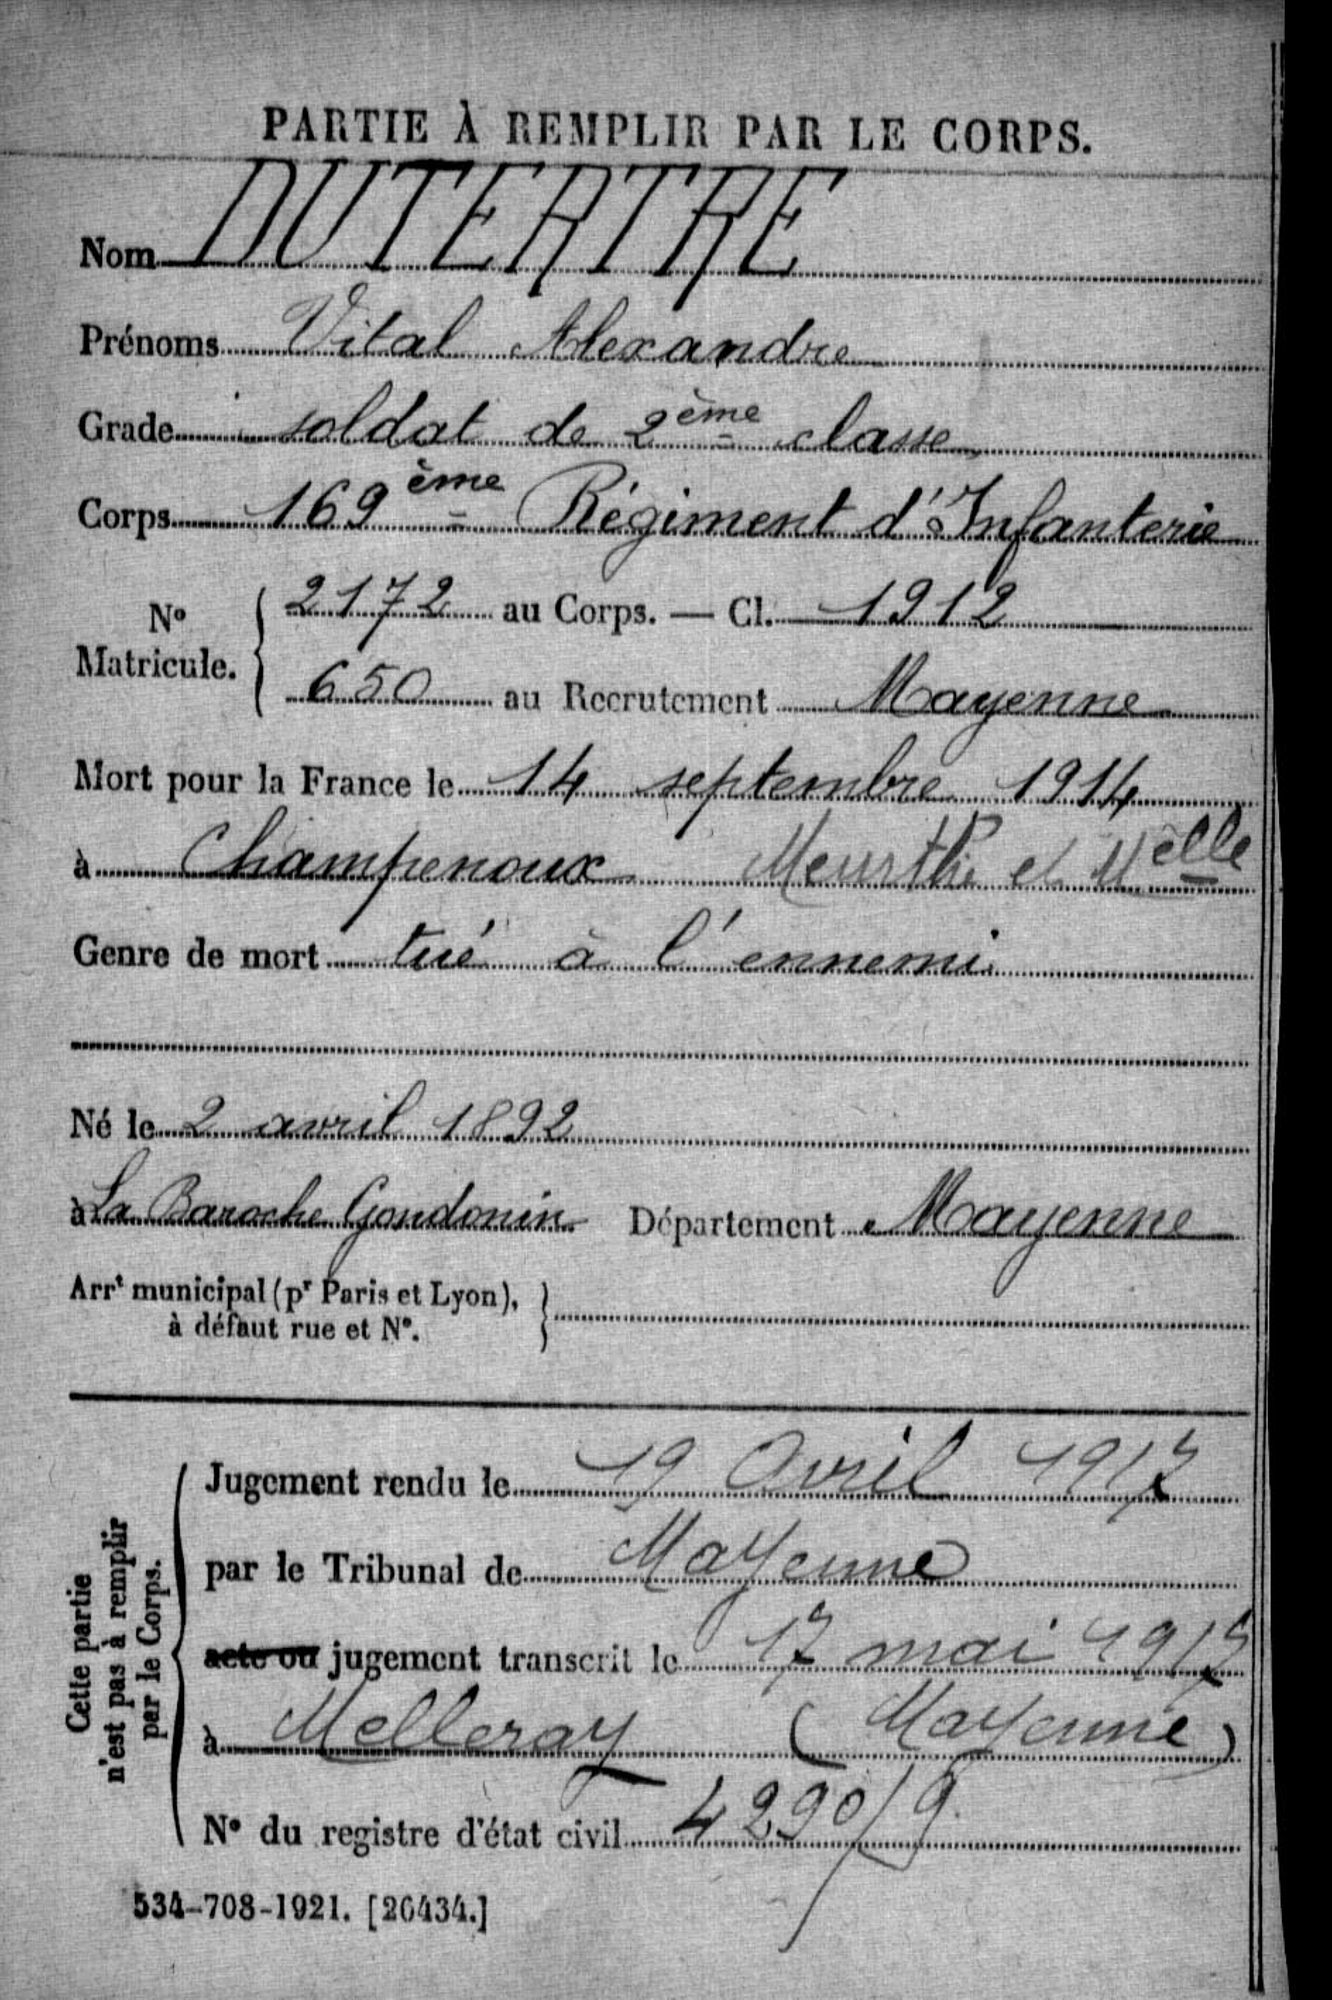 PARTIE À REMPLIR PAR LE CORPS.
Nom DUTERTRE
Prénoms Vital Alexandre
Grade soldat de 2ème classe
Corps 169ème Régiment d'Infanterie
No Matricule. { 2172 au Corps. — Cl. 1912
650 au Recrutement Mayenne
Mort pour la France le 14 septembre 1914
à Champenoux Meurthe et Melle
Genre de mort tué à l'ennemi
Né le 2 avril 1892
à La Baroche Gondouin Département Mayenne
Arrt municipal (pr Paris et Lyon),
à défaut rue et No.
Cette partie
n'est pas à remplir
par le Corps.
Jugement rendu le 19 Avril 1917
par le Tribunal de Mayenne
acte ou jugement transcrit le 17 mai 1917
à Melleray (Mayenne)
No du registre d'état civil 4290/9
534-708-1921. [26434.]